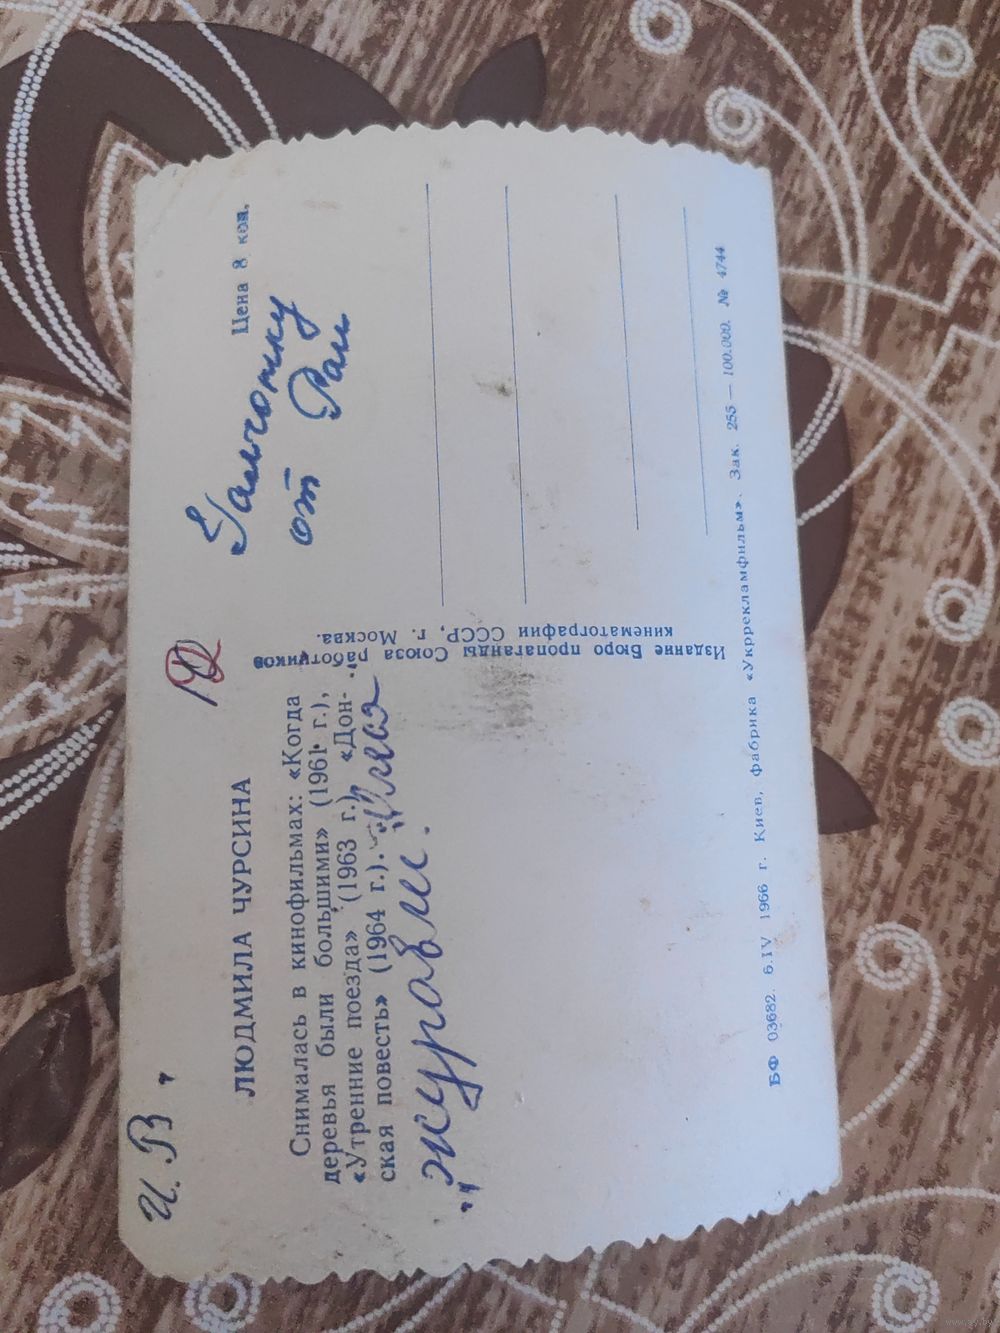 И. В.
ЛЮДМИЛА ЧУРСИНА
Снималась в кинофильмах: «Когда
деревья были большими» (1961 г.),
«Утренние поезда» (1963 г.), «Дон-
ская повесть» (1964 г.).
„Журавли“.
Издание Бюро пропаганды Союза работников
кинематографии СССР, г. Москва.
Цена 8 коп.
Гальчонку
от Раи
БФ 03682. 6.IV 1966 г. Киев, фабрика «Укррекламфильм». Зак. 255 — 100.000. № 4744